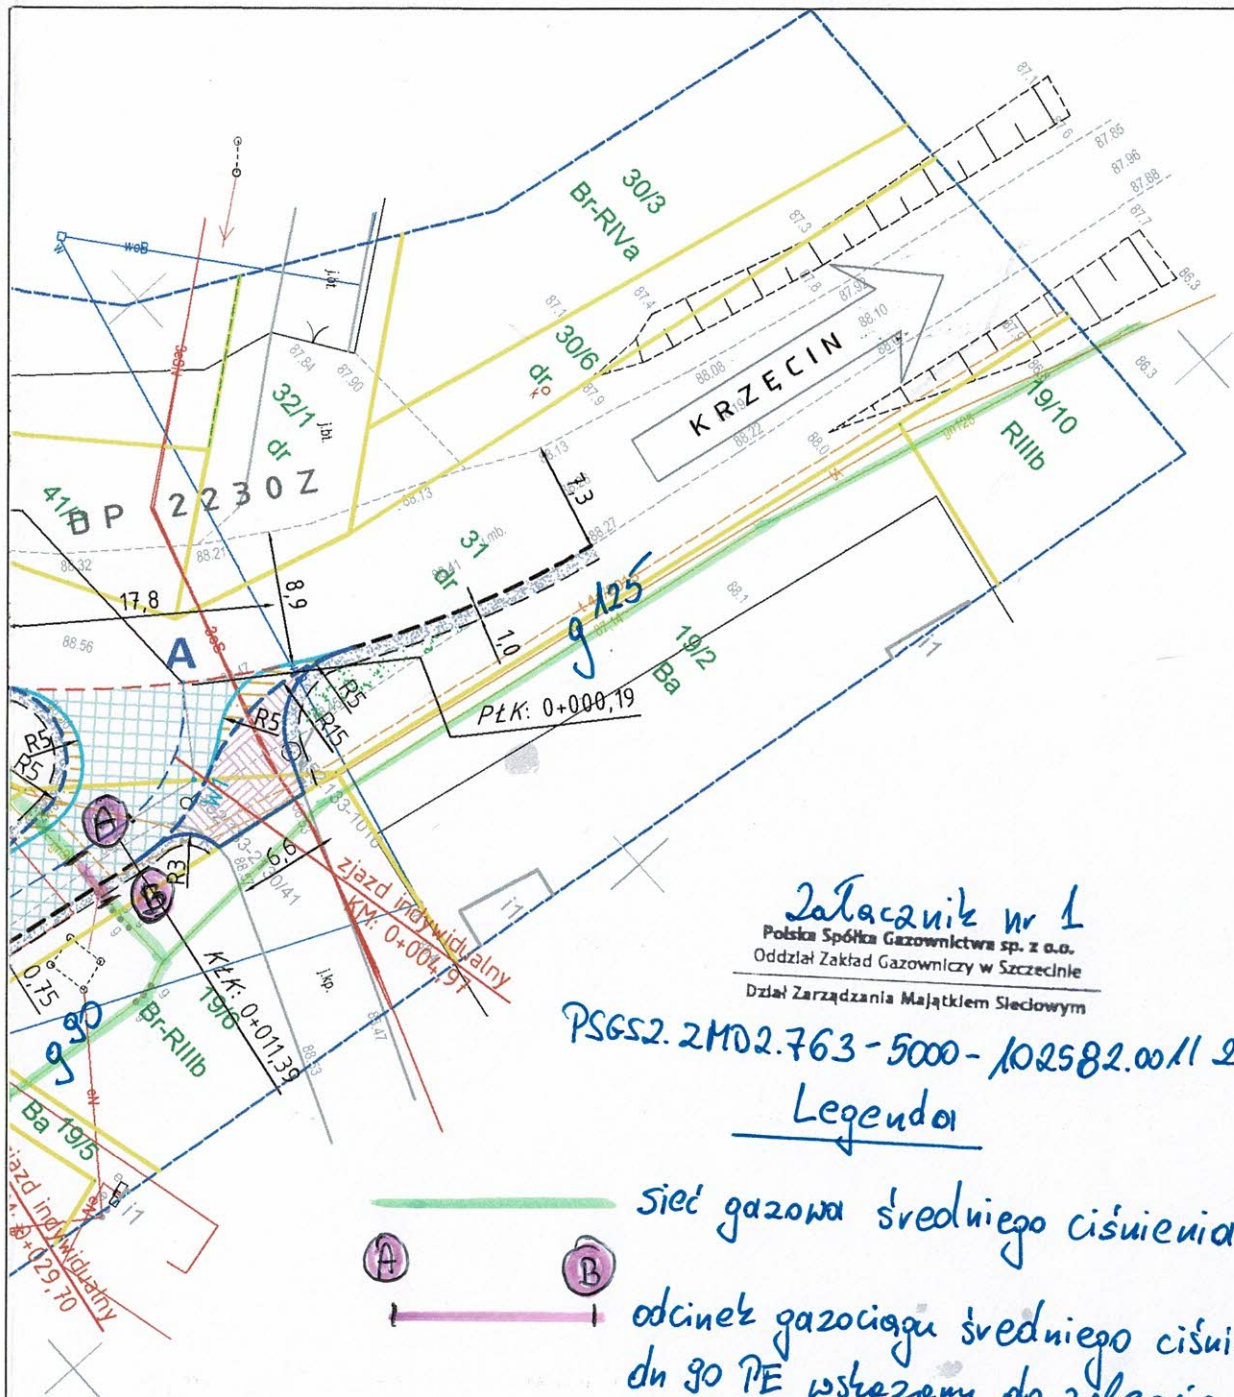 30/3
Br-RIVa
87.1
87.85
87.96
87.88
87.7
86.3
87.3
87.8
87.92
88.10
87.4
87.1
30/6
dr
87.9
88.08
88.22
88.0
87.9
KRZĘCIN
86.3
19/10
RIIIb
gn125
woB
w
j.bt.
87.84
87.90
32/1
dr
j.bt.
DP 2230Z
88.32
88.21
88.13
88.13
7,3
88.27
31
dr
mb.
88.41
17,8
8,9
88.56
A
1,0
g 125
87.14
88.1
19/2
Ba
i1
R5
R15
R5
PŁK: 0+000,19
R5
R5
A
B
R3
6,6
zjazd indywidualny
KM: 0+004,97
i1
0,75
KŁK: 0+011.39
19/6
Br-RIIIb
j.kp.
g 90
Ba 19/5
eN
i1
zjazd indywidualny
0+029,70
Załącznik nr 1
Polska Spółka Gazownictwa sp. z o.o.
Oddział Zakład Gazowniczy w Szczecinie
Dział Zarządzania Majątkiem Sieciowym
PSGSZ.ZMDZ.763-5000-102582.001/1 2
Legenda
sieć gazowa średniego ciśnienia
A B
odcinek gazociągu średniego ciśni
dn 90 PE wskazany do